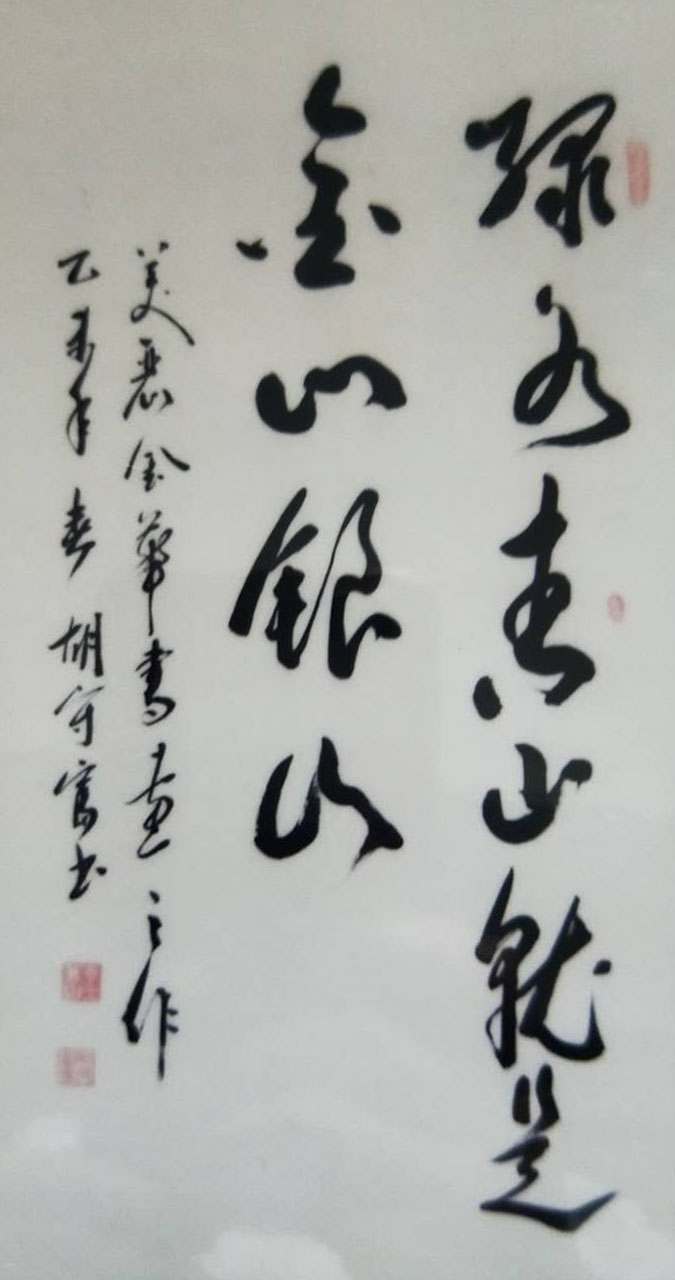 绿水青山就是
金山银山
美丽金华书画之作
乙未年春 胡守富书